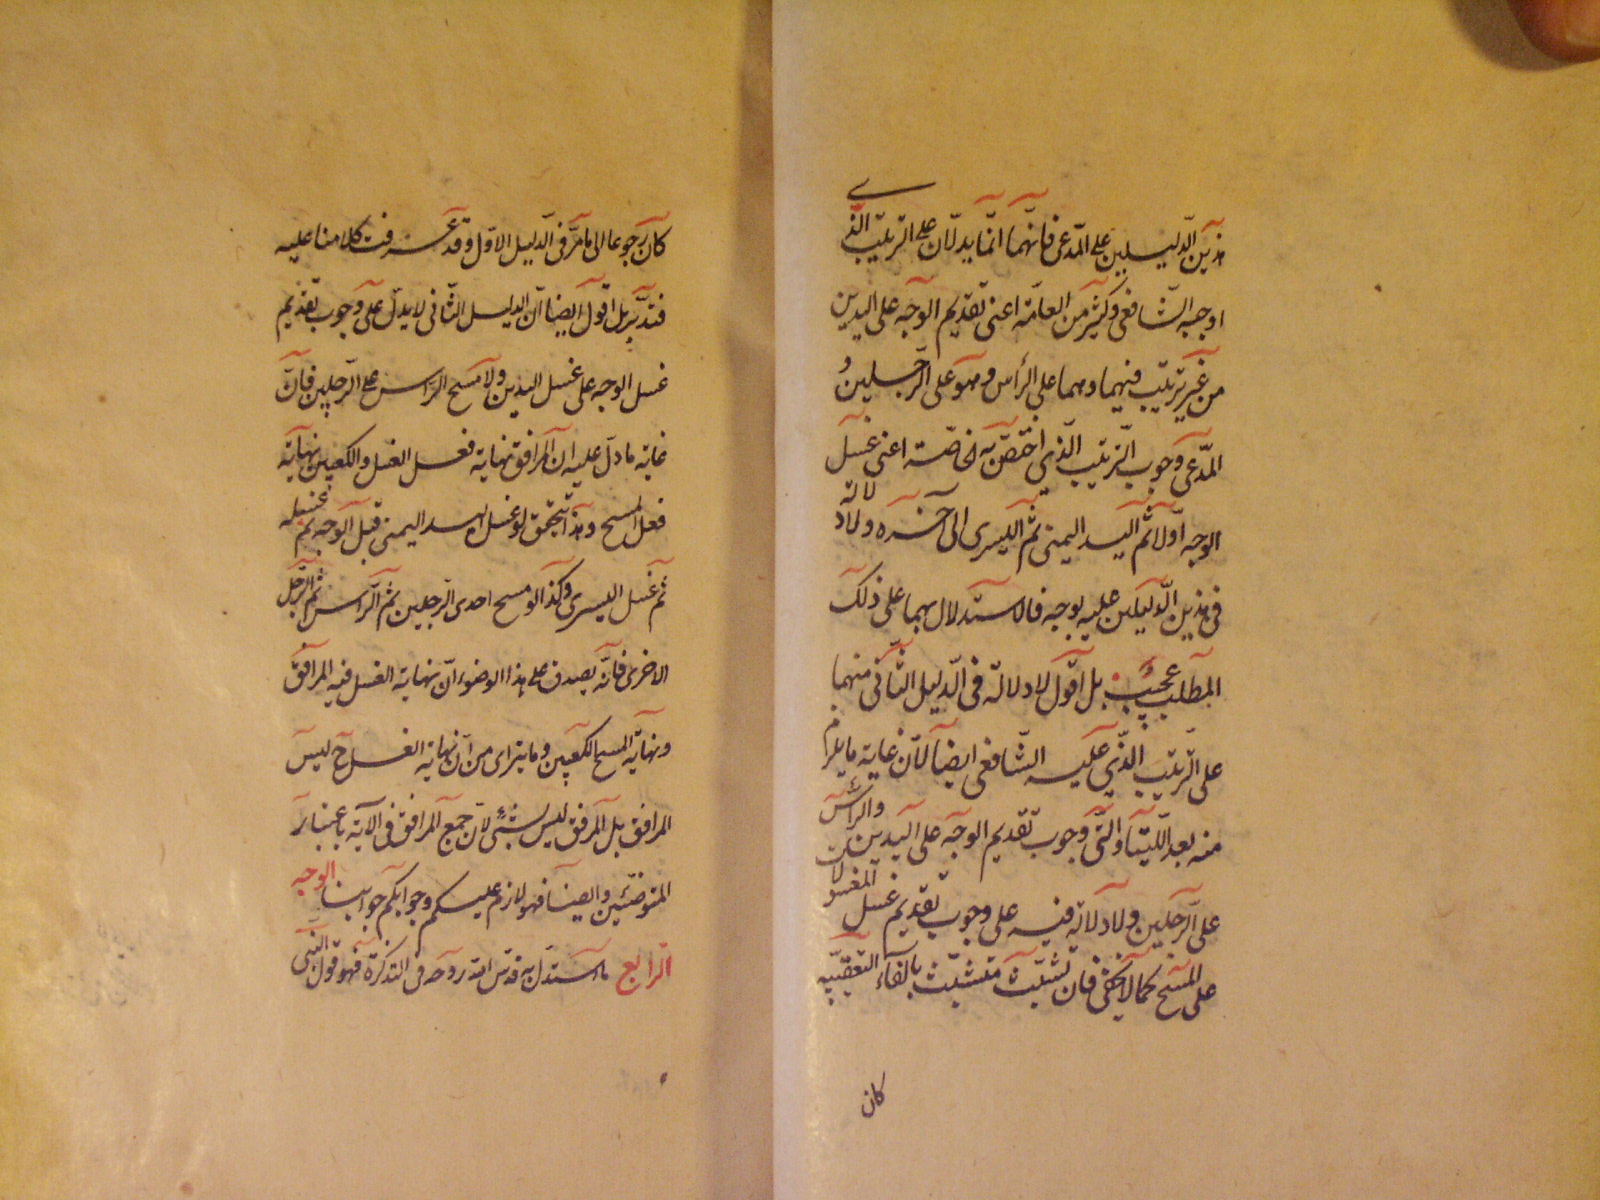 هذين الدّليلين على المدّعى فانّهما انّما يدلّان على الترتيب الّذي
اوجبه الشّافعى وكثير من العامّة اعنى تقديم الوجه على اليدين
من غير ترتيب فيهما وهما على الرأس وهو على الرّجلين و
المدّعى وجوب الترتيب الّذي اختصّ به الخاصّة اعنى غسل
الوجه اوّلا ثمّ اليد اليمنى ثمّ اليسرى الى آخره ولا دلالة
فى هذين الدّليلين عليه بوجه فالاستدلال بهما على ذلك
المطلب عجيب بل اقول لا دلالة فى الدّليل الثّانى منهما
على الترتيب الّذي عليه الشّافعى ايضا لانّ غاية ما يلزم
منه بعد اللّتيّا والّتى وجوب تقديم الوجه على اليدين والرأس
على الرّجلين ولا دلالة فيه على وجوب تقديم غسل المغسولات
على المسح كما لا يخفى فان تشبّث متشبّث بالفاء التعقيبيّه
كان
كان رجوعا الى ما مرّ فى الدّليل الاوّل وقد عرفت كلامنا عليه
فتدبّر بل اقول ايضا انّ الدليل الثّانى لا يدلّ على وجوب تقديم
غسل الوجه على غسل اليدين ولا مسح الرّاس على الرّجلين فانّ
غاية ما دلّ عليه ان المرافق نهاية فعل الغسل والكعبين نهاية
فعل المسح وهذا يتحقق لو غسل اليد اليمنى قبل الوجه ثم غسله
ثم غسل اليسرى وكذا لو مسح احدى الرّجلين ثمّ الرّاس ثمّ الرّجل
الاخرى فانّه يصدق على هذا الوضوء انّ نهاية الغسل فيه المرافق
ونهاية المسح الكعبين وما يتراى من انّ نهاية الغسل ح ليس
المرافق بل المرفق ليس بشئ لانّ جمع المرافق فى الآية باعتبار
المتوضّئين وايضا فهو لازم عليكم وجوابكم جوابنا الوجه
الرّابع ما استدلّ به قدّس الله روحه فى التذكرة فهو قول النّبى